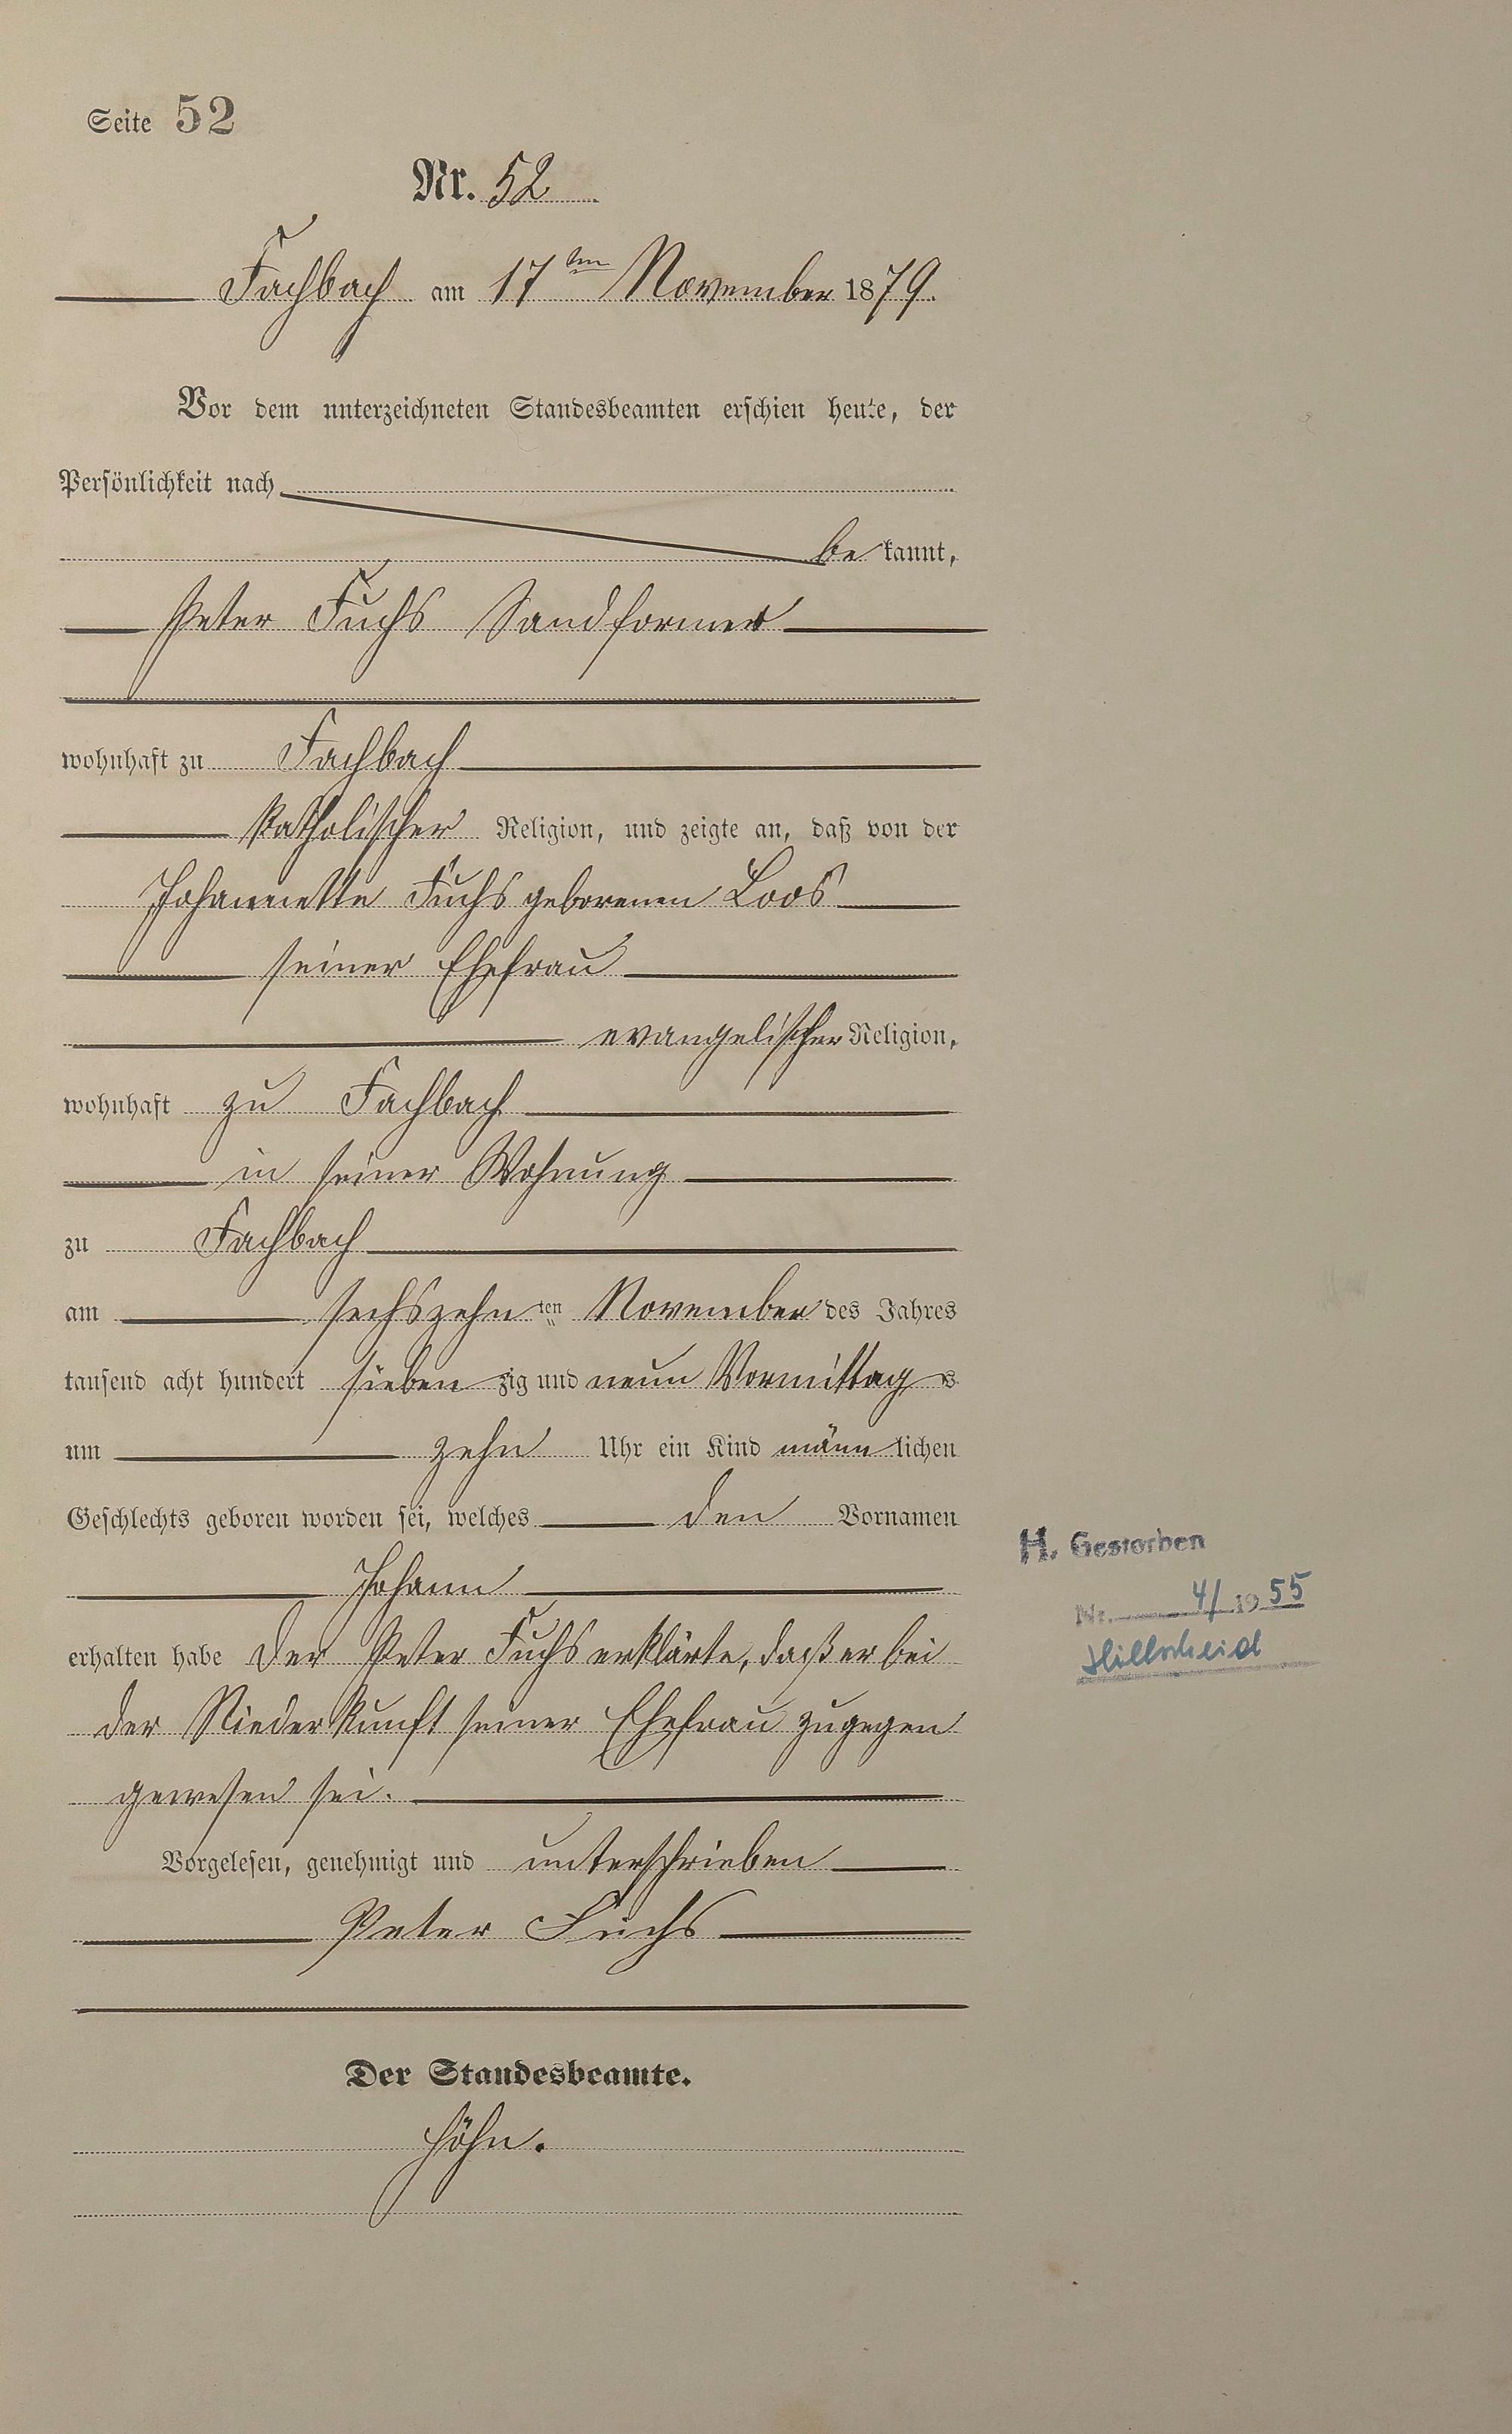 Seite 52
Nr. 52
Fachbach am 17ten November 1879.
Vor dem unterzeichneten Standesbeamten erschien heute, der
Persönlichkeit nach
be kannt,
Peter Fuchs Sandformer
wohnhaft zu Fachbach
katholischer Religion, und zeigte an, daß von der
Johannette Fuchs geborenen Loos
seiner Ehefrau
evangelischer Religion,
wohnhaft zu Fachbach
in seiner Wohnung
zu Fachbach
am sechszehnten November des Jahres
tausend acht hundert sieben zig und neun Vormittag s
um zehn Uhr ein Kind männ lichen
Geschlechts geboren worden sei, welches den Vornamen
Johann
erhalten habe Der Peter Fuchs erklärte, daß er bei
der Niederkunft seiner Ehefrau zugegen
gewesen sei.
Vorgelesen, genehmigt und unterschrieben
Peter Fuchs
Der Standesbeamte.
Höhn.
H. Gestorben
Nr. 4/ 19 55
Hillscheid